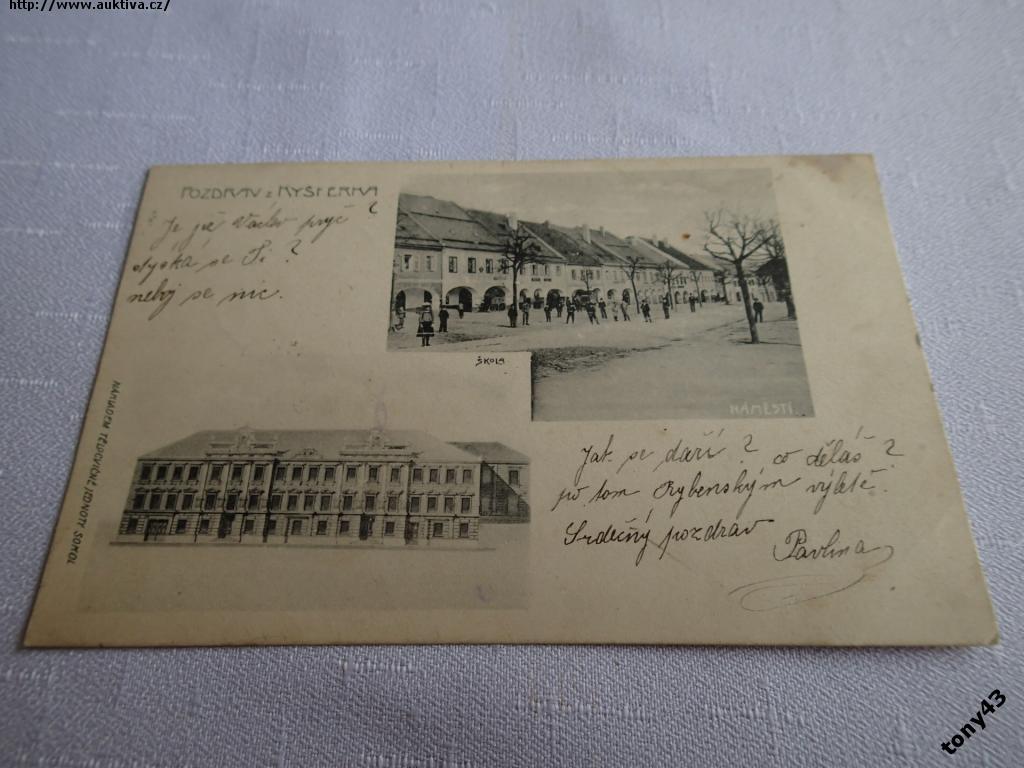 http://www.auktiva.cz/
POZDRAV z KYŠPERKA
Je již Václav pryč?
stýská se Ti?
neboj se nic.
ŠKOLA
NÁMĚSTÍ
NÁKLADEM TĚLOCVIČNÉ JEDNOTY SOKOL
Jak se daří? co děláš?
po tom Rybenským výlětě.
Srdečný pozdrav
Pavlina
tony43